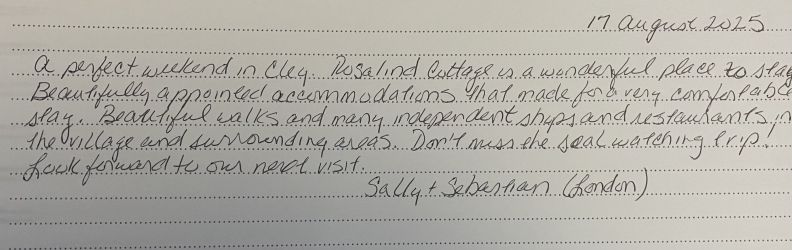 17 August 2025
A perfect weekend in Cley. Rosalind Cottage is a wonderful place to stay
Beautifully appointed accommodations that made for a very comfortable
stay. Beautiful walks and many independent shops and restaurants in
the village and surrounding areas. Don't miss the seal watching trip!
Look forward to our next visit.
Sally + Sebastian (London)